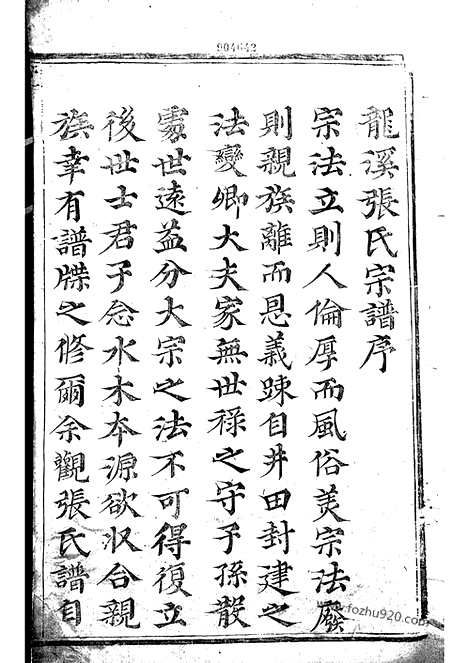 904642
龍溪張氏宗譜序
宗法立則人倫厚而風俗美宗法廢
則親族離而恩義踈自井田封建之
法變卿大夫家無世禄之守子孫散
處世遠益分大宗之法不可得復立
後世士君子念水木夲源欲収合親
族幸有譜牒之修爾余觀張氏譜自
www.fozhu920.com